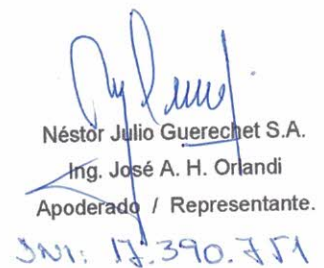 Néstor Julio Guerechet S.A.
Ing. José A. H. Orlandi
Apoderado / Representante.
DNI: 17.390.751